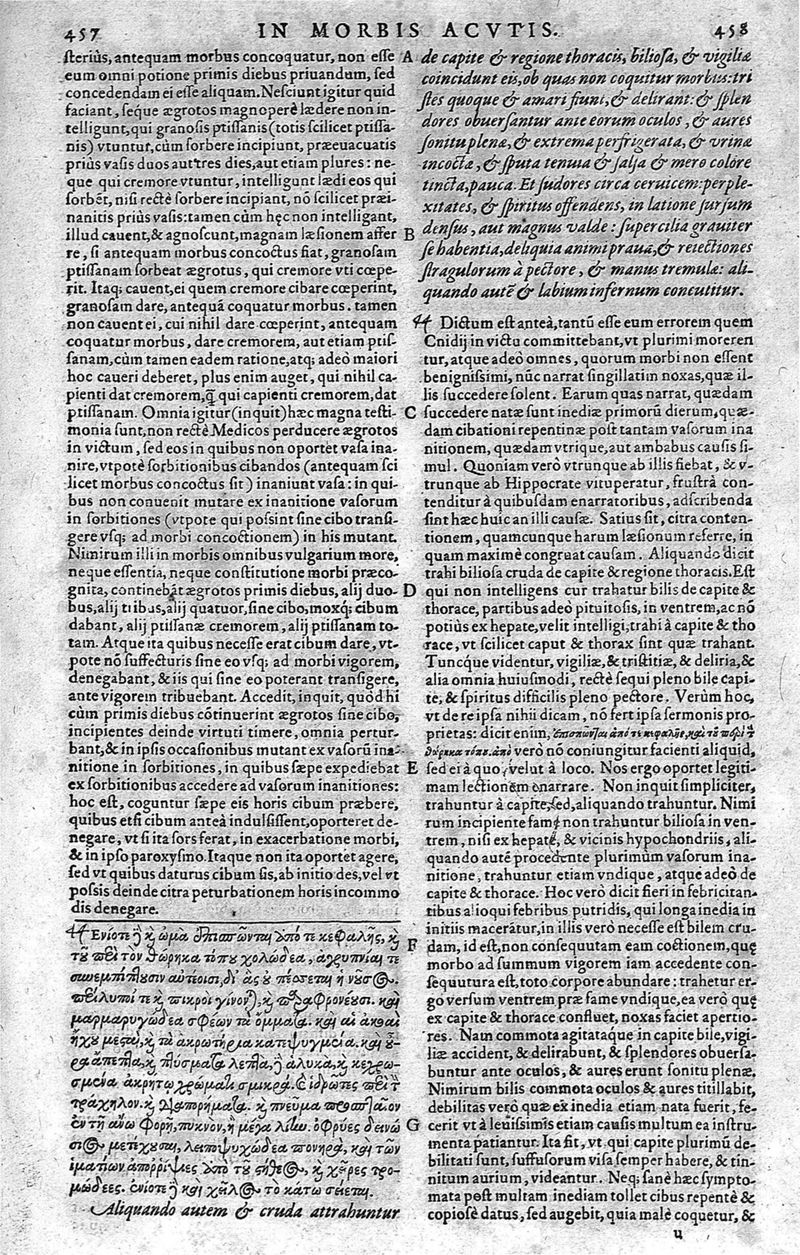 457 IN MORBIS ACVTIS. 458
steriùs, antequam morbus concoquatur, non esse
eum omni potione primis diebus priuandum, sed
concedendam ei esse aliquam. Nesciunt igitur quid
faciant, seque ægrotos magnoperè lædere non in-
telligunt, qui granosis ptissanis (totis scilicet ptissa-
nis) vtuntur, cùm sorbere incipiunt, præeuacuatis
priùs vasis duos aut tres dies, aut etiam plures: ne-
que qui cremore vtuntur, intelligunt lædi eos qui
sorbēt, nisi rectè sorbere incipiant, nō scilicet præi-
nanitis priùs vasis: tamen cùm hęc non intelligant,
illud cauent, & agnoscunt, magnam læsionem affer
re, si antequam morbus concoctus fiat, granosam
ptissanam sorbeat ægrotus, qui cremore vti cœpe-
rit. Itaq; cauent, ei quem cremore cibare cœperint,
granosam dare, antequā coquatur morbus. tamen
non cauent ei, cui nihil dare cœperint, antequam
coquatur morbus, dare cremorem, aut etiam ptis-
sanam, cùm tamen eadem ratione, atq; adeò maiori
hoc caueri deberet, plus enim auget, qui nihil ca-
pienti dat cremorem, q̃ qui capienti cremorem, dat
ptissanam. Omnia igitur (inquit) hæc magna testi-
monia sunt, non rectè Medicos perducere ægrotos
in victum, sed eos in quibus non oportet vasa ina-
nire, vtpotè sorbitionibus cibandos (antequam sci
licet morbus concoctus sit) inaniunt vasa: in qui-
bus non conuenit mutare ex inanitione vasorum
in sorbitiones (vtpote qui possint sine cibo transi-
gere vsq; ad morbi concoctionem) in his mutant.
Nimirum illi in morbis omnibus vulgarium more,
neque essentia, neque constitutione morbi præco-
gnita, continebāt ægrotos primis diebus, alij duo-
bus, alij tribus, alij quatuor, sine cibo, moxq; cibum
dabant, alij ptissanæ cremorem, alij ptissanam to-
tam. Atque ita quibus necesse erat cibum dare, vt-
pote nō suffecturis sine eo vsq; ad morbi vigorem,
denegabant, & iis qui sine eo poterant transigere,
ante vigorem tribuebant. Accedit, inquit, quòd hi
cùm primis diebus cōtinuerint ægrotos sine cibo,
incipientes deinde virtuti timere, omnia pertur-
bant, & in ipsis occasionibus mutant ex vasorū ina-
nitione in sorbitiones, in quibus sæpe expediebat
ex sorbitionibus accedere ad vasorum inanitiones:
hoc est, coguntur sæpe eis horis cibum præbere,
quibus etsi cibum anteà indulsissent, oporteret de-
negare, vt si ita sors ferat, in exacerbatione morbi,
& in ipso paroxysmo. Itaque non ita oportet agere,
sed vt quibus daturus cibum sis, ab initio des, vel vt
possis deinde citra peturbationem horis incommo
dis denegare.
44 Ενίοτε ἢ κ̀ ὠμὰ ἐπισπῶνται ἀπό τε κεφαλῆς, κ̀
τοῦ περὶ τὸν θώρηκα τόπου χολώδεα, ἀγρυπνίαι τε
συνεμπίπτουσιν αὐτέοισι, δι᾽ ἃς οὐ πέσσεται ἡ νοῦσος.
περίλυποί τε κ̀ πικροὶ γίνονται, κ̀ παραφρονέουσι. καὶ
μαρμαρυγώδεα σφέων τὰ ὄμματα. καὶ αἱ ἀκοαὶ
ἤχου μεσταὶ, κ̀ τὰ ἀκρωτήρια κατεψυγμένα. καὶ οὖ-
ρα ἄπεπτα, κ̀ πτύσματα λεπτὰ, ἢ ἁλυκὰ, κ̀ κεχρωσ-
μένα ἀκρήτῳ χρώματι σμικρά. κ̀ ἱδρῶτες περὶ τὸν
τράχηλον. κ̀ διαπορήματα. κ̀ πνεῦμα προσπταῖον
ἐν τῇ ἄνω φορῇ, πυκνὸν, ἢ μέγα λίην. ὀφρύες δεινώ
σιος μετέχουσαι, λειποψυχώδεα πονηρὰ, καὶ τῶν
ἱματίων ἀπορρίψιες ἀπὸ τοῦ στήθεος, κ̀ χεῖρες τρο-
μώδεες. ἐνίοτε ἢ καὶ χεῖλος τὸ κάτω σείεται.
Aliquando autem & cruda attrahuntur
A de capite & regione thoracis, biliosa, & vigiliæ
coincidunt eis, ob quas non coquitur morbus: tri
stes quoque & amari fiunt, & delirant: & splen
dores obuersantur ante eorum oculos, & aures
sonitu plenæ, & extrema perfrigerata, & vrinæ
incoctæ, & sputa tenuia & salsa & mero colore
tincta, pauca. Et sudores circa ceruicem: perple-
xitates, & spiritus offendens, in latione sursum
B densus, aut magnus valde: supercilia grauiter
se habentia, deliquia animi praua, & reiectiones
stragulorum à pectore, & manus tremulæ: ali-
quando autē & labium infernum concutitur.
44 Dictum est anteà, tantū esse eum errorem quem
Cnidij in victu committebant, vt plurimi moreren
tur, atque adeò omnes, quorum morbi non essent
benignissimi, nūc narrat singillatim noxas, quæ il-
lis succedere solent. Earum quas narrat, quædam
C succedere natæ sunt inediæ primorū dierum, quæ-
dam cibationi repentinæ post tantam vasorum ina
nitionem, quædam vtrique, aut ambabus causis si-
mul. Quoniam verò vtrunque ab illis fiebat, & v-
trunque ab Hippocrate vituperatur, frustrà con-
tenditur à quibusdam enarratoribus, adscribenda
sint hæc huic an illi causæ. Satius sit, citra conten-
tionem, quamcunque harum læsionum referre, in
quam maximè congruat causam. Aliquando dicit
trahi biliosa cruda de capite & regione thoracis. Est
D qui non intelligens cur trahatur bilis de capite &
thorace, partibus adeò pituitosis, in ventrem, ac nō
potiùs ex hepate, velit intelligi, trahi à capite & tho
race, vt scilicet caput & thorax sint quæ trahant.
Tuncque videntur, vigiliæ, & tristitiæ, & deliria, &
alia omnia huiusmodi, rectè sequi pleno bile capi-
te, & spiritus difficilis pleno pectore. Verùm hoc,
vt de re ipsa nihil dicam, nō fert ipsa sermonis pro-
prietas: dicit enim, ἐπισπῶνται ἀπό τε κεφαλῆς, καὶ τοῦ περὶ τ̀
θώρηκα τόπου. ἀπὸ verò nō coniungitur facienti aliquid,
E sed ei à quo, velut à loco. Nos ergo oportet legiti-
mam lectionem enarrare. Non inquit simpliciter,
trahuntur à capite, sed, aliquando trahuntur. Nimi
rum incipiente fame non trahuntur biliosa in ven-
trem, nisi ex hepate, & vicinis hypochondriis, ali-
quando autē procedente plurimùm vasorum ina-
nitione, trahuntur etiam vndique, atque adeò de
capite & thorace. Hoc verò dicit fieri in febricitan-
tibus alioqui febribus putridis, qui longa inedia in
initiis macerātur, in illis verò necesse est bilem cru-
F dam, id est, non consequutam eam coctionem, quę
morbo ad summum vigorem iam accedente con-
sequutura est, toto corpore abundare: trahetur er-
go versum ventrem præ fame vndique, ea verò quę
ex capite & thorace confluet, noxas faciet apertio-
res. Nam commota agitataque in capite bile, vigi-
liæ accident, & delirabunt, & splendores obuersa-
buntur ante oculos, & aures erunt sonitu plenæ,
Nimirum bilis commota oculos & aures titillabit,
debilitas verò quæ ex inedia etiam nata fuerit, fe-
G cerit vt à leuissimis etiam causis multum ea instru-
menta patiantur. Ita fit, vt qui capite plurimū de-
bilitati sunt, suffusorum visa semper habere, & tin-
nitum aurium, videantur. Neq; sanè hæc sympto-
mata post multam inediam tollet cibus repentè &
copiosè datus, sed augebit, quia malè coquetur, &
u